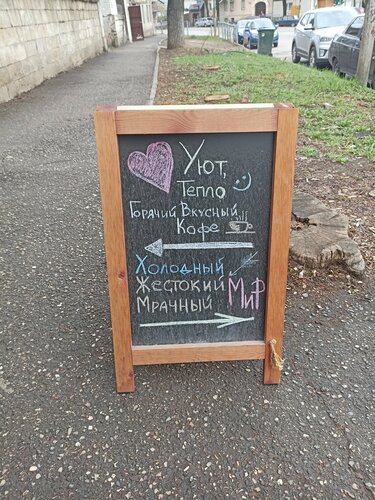 Уют,
Тепло
Горячий Вкусный
Кофе
Холодный
Жестокий
Мрачный Мир